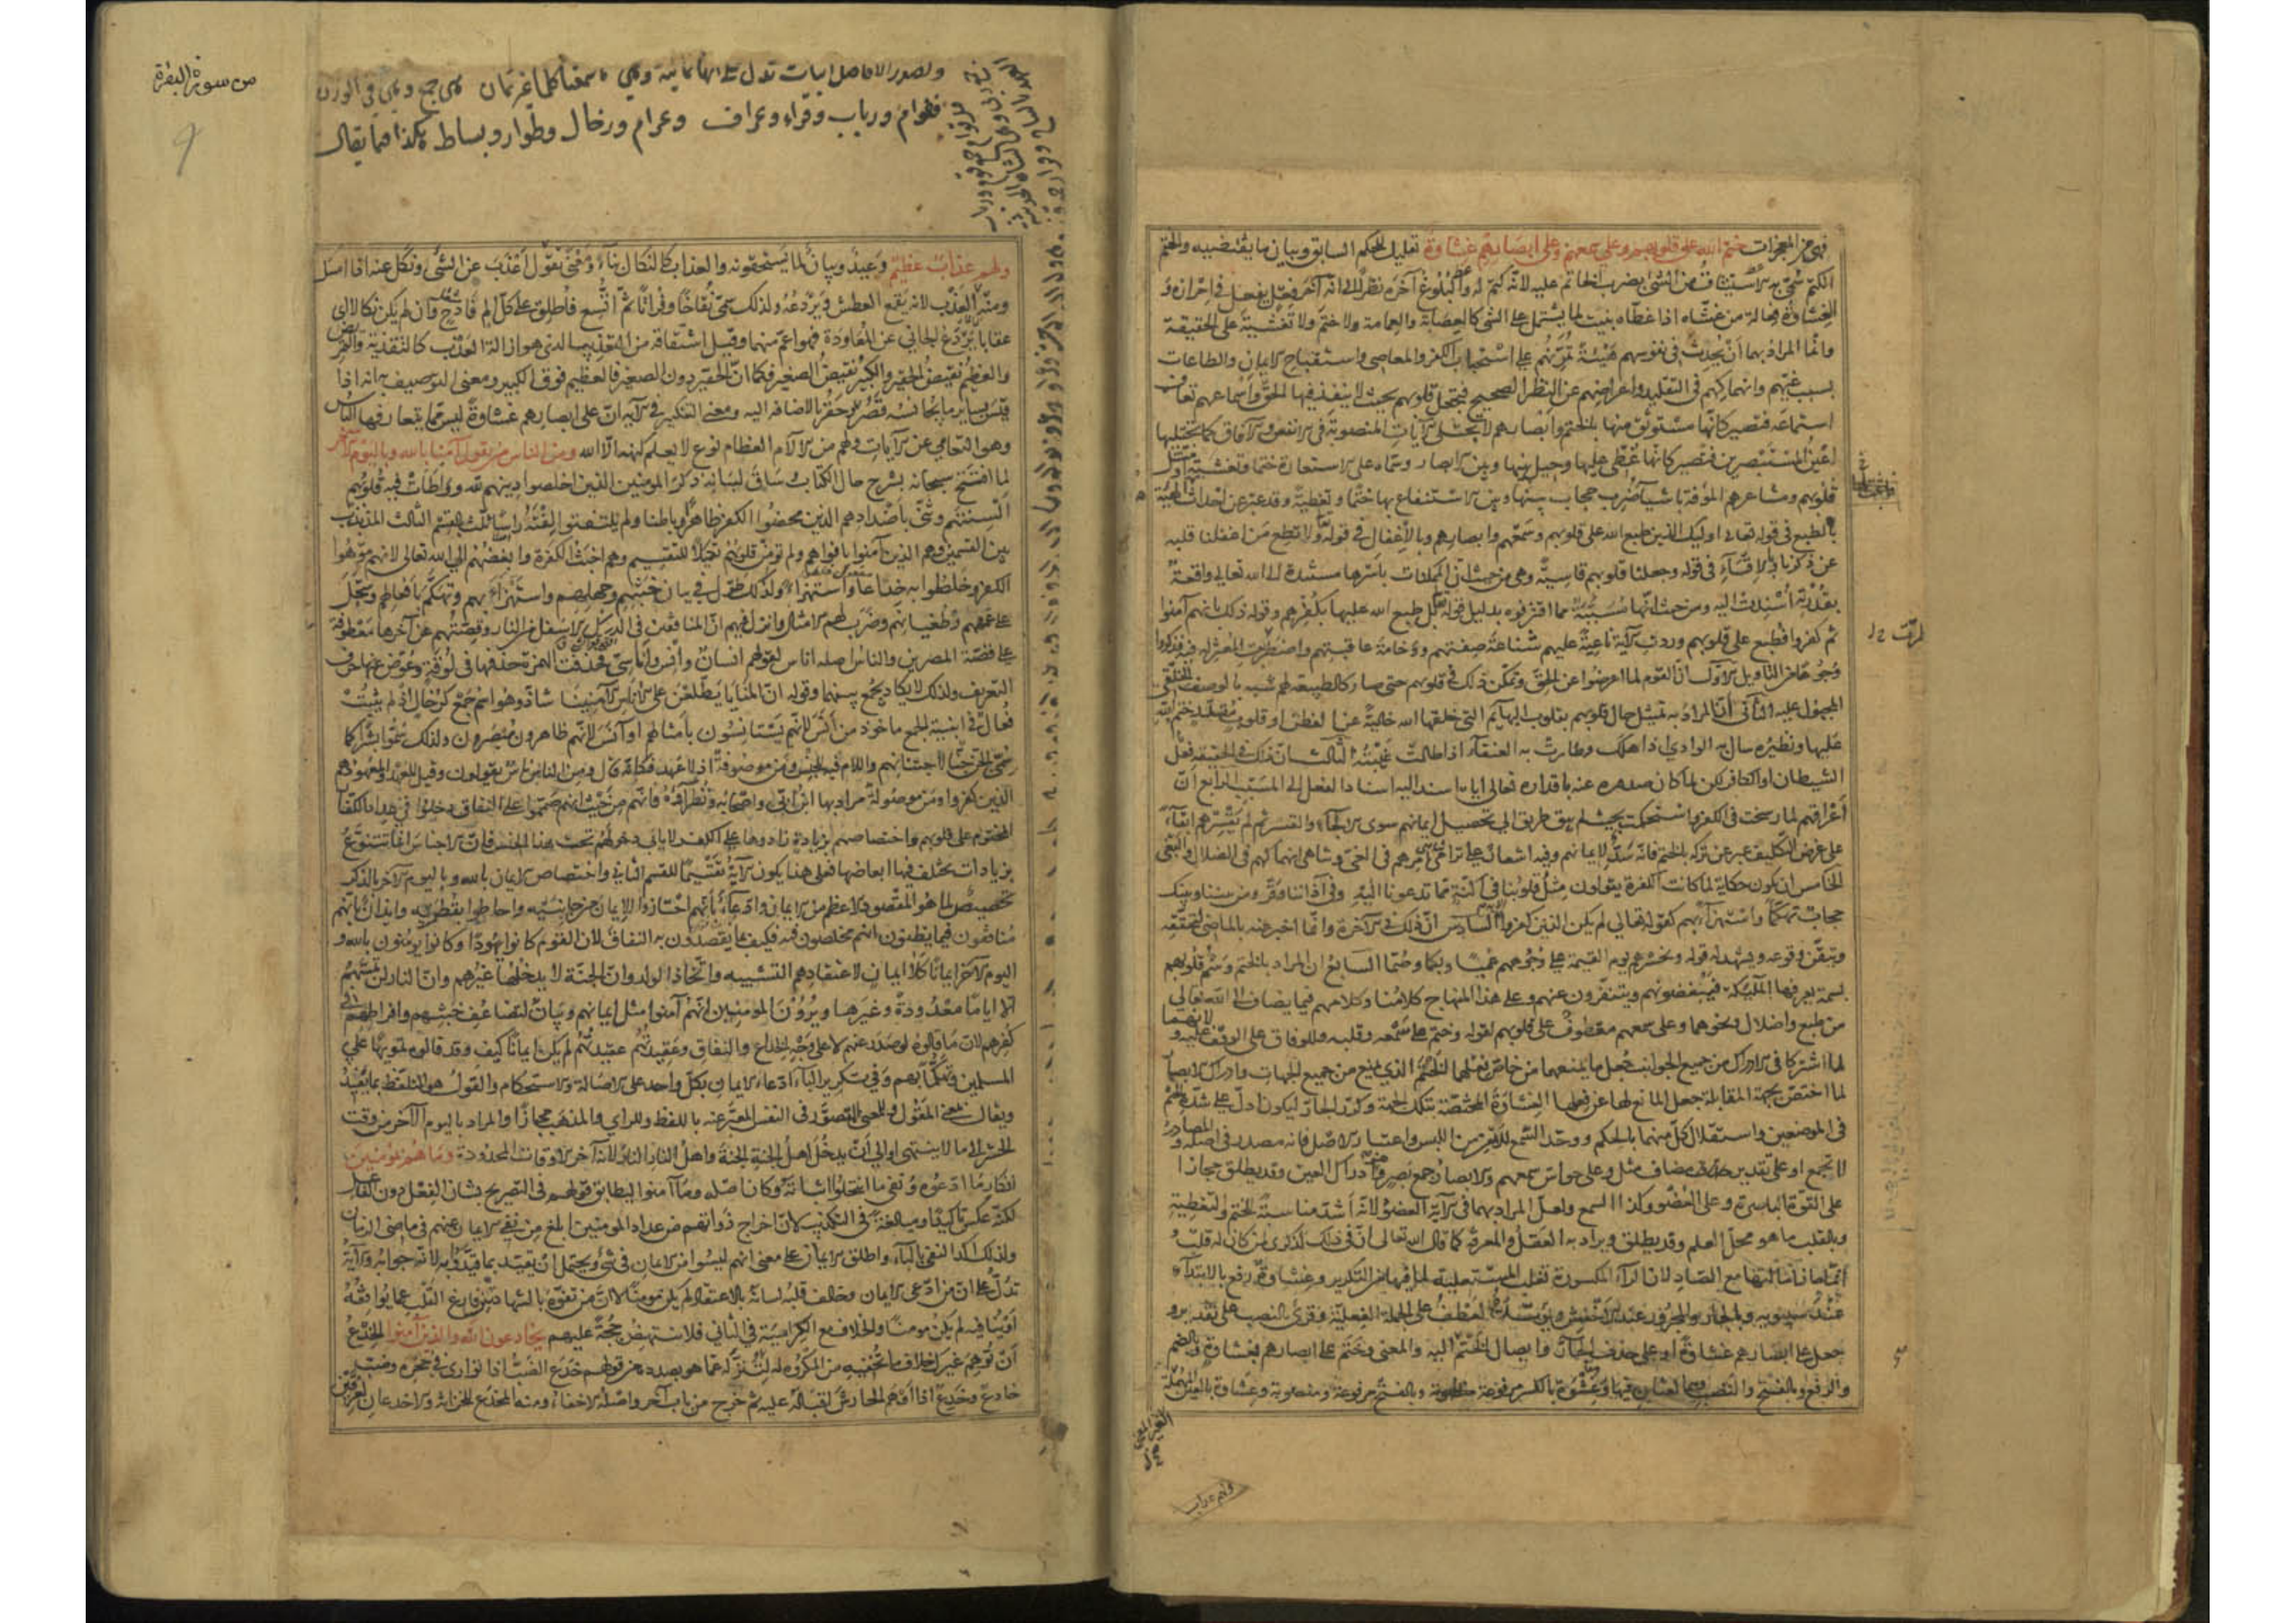 فهي من المعجزات ختم الله على قلوبهم وعلى سمعهم وعلى ابصارهم غشاوة تعليل للحكم السابق وبيان ما يقتضيه والختم
الكتم سمّي به الاستيثاق من الشئ بضرب الخاتم عليه لانّه كتم له والبلوغ آخره نظرًا الى انه آخر فعل يفعل في احرازه و
الغشاوة فعالة من غشّاه اذا غطّاه بنيت لما يشتمل على الشئ كالعصابة والعمامة ولا ختم ولا تغشية على الحقيقة
وانما المراد بهما ان يحدث في نفوسهم هيئة تمرّنهم على استحباب الكفر والمعاصي واستقباح الايمان والطاعات
بسبب غيّهم وانهماكهم في التقليد واعراضهم عن النظر الصحيح فتجعل قلوبهم بحيث لا ينفذ فيها الحق واسماعهم تعاف
استماعه فتصير كانّها مستوثق منها بالختم وابصارهم لا تجتلي الآيات المنصوبة في الانفس والآفاق كما تجتليها
اعين المستبصرين فتصير كانها غطّي عليها وحيل بينها وبين الابصار وسمّاه على الاستعارة ختما وتغشية او مثّل
قلوبهم ومشاعرهم المؤفة باشياء ضرب حجاب بينها وبين الاستنفاع بها ختما وتغطية وقد عبّر عن احداث الهيئة
بالطبع في قوله تعالى اولئك الذين طبع الله على قلوبهم وسمعهم وابصارهم وبالاغفال في قوله ولا تطع من اغفلنا قلبه
عن ذكرنا وبالاقساء في قوله وجعلنا قلوبهم قاسية وهي من حيث ان الممكنات باسرها مستندة الى الله تعالى واقعة
بقدرته اسندت اليه ومن حيث انّها مسبّبة مما اقترفوه بدليل قوله بل طبع الله عليها بكفرهم وقوله ذلك بانهم آمنوا
ثم كفروا فطبع على قلوبهم وردت الآية ناعية عليهم شناعة صفتهم ووخامة عاقبتهم واضطربت المعتزلة فيه فذكروا
وجوها من التأويل الاول ان القوم لما اعرضوا عن الحق وتمكّن ذلك في قلوبهم حتى صار كالطبيعة لهم شبه بالوصف الخلقي
المجبول عليه الثاني ان المراد به تمثيل حال قلوبهم بقلوب البهائم التي خلقها الله خالية عن الفطن او قلوب مقدّر ختم الله
عليها ونظيره سال به الوادي اذا هلك وطارت به العنقاء اذا طالت غيبته الثالث ان ذلك في الحقيقة فعل
الشيطان او الكافر لكن لما كان صدوره عنه باقداره تعالى اياه اسند اليه اسناد الفعل الى المسبّب الرابع انّ
اعراقهم لما رسخت في الكفر واستحكمت بحيث لم يبق طريق الى تحصيل ايمانهم سوى الالجاء والقسر ثم لم يقسرهم ابقاءً
على غرض التكليف عبر عن تركه بالختم فانه سدّ لايمانهم وفيه اشعار على ترامي امرهم في الغي وتناهي انهماكهم في الضلال والبغي
الخامس ان يكون حكاية لما كانت الكفرة يقولون مثل قلوبنا في اكنّة مما تدعونا اليه وفي آذاننا وقر ومن بيننا وبينك
حجاب تهكّما واستهزاءً بهم كقوله تعالى لم يكن الذين كفروا السادس ان ذلك في الآخرة وانما اخبر عنه بالماضي لتحققه
وتيقّن وقوعه ويشهد له قوله ونحشرهم يوم القيمة على وجوههم عميًا وبكما وصمّا السابع ان المراد بالختم وسم قلوبهم
بسمة يعرفها الملئكة فيبغضونهم ويتنفّرون عنهم وعلى هذا المنهاج كلامنا وكلامهم فيما يضاف الى الله تعالى
من طبع واضلال ونحوهما وعلى سمعهم معطوف على قلوبهم لقوله وختم على سمعه وقلبه وللوفاق على الوقف عليه ولانهما
لما اشتركا في الادراك من جميع الجوانب جعل ما يمنعهما من خاص فعلهما الختم الذي يمنع من جميع الجهات وادراك الابصار
لما اختصّ بجهة المقابلة جعل المانع لها عن فعلها الغشاوة المختصّة بتلك الجهة وكرّر الجارّ ليكون ادلّ على شدّة الختم
في الموضعين واستقلال كلّ منهما بالحكم ووحّد السمع للامن من اللبس واعتبار الاصل فانه مصدر في اصله والمصادر
لا تجمع او على تقدير مضاف مثل وعلى حواس سمعهم والابصار جمع بصر وهو ادراك العين وقد يطلق مجازا
على القوّة الباصرة وعلى العضو وكذا السمع ولعل المراد بهما في الآية العضو لانّه اشدّ مناسبة للختم والتغطية
وبالقلب ما هو محلّ العلم وقد يطلق ويراد به العقل والمعرفة كما قال الله تعالى انّ في ذلك لذكرى لمن كان له قلب و
انما جاز امالتها مع الصاد لان الراء المكسورة تغلب المستعلية لما فيها من التكرير وغشاوة رفع بالابتداء
عند سيبويه وبالجار والمجرور عند الاخفش ويؤيّده العطف على الجملة الفعلية وقرئ بالنصب على تقدير و
جعل على ابصارهم غشاوة او على حذف الجارّ وايصال الختم اليه والمعنى وختم على ابصارهم بغشاوة وبالضم
والرفع وبالفتح والنصب وهما لغتان فيها وغشوة بالكسر مرفوعة وبالفتح مرفوعة ومنصوبة وعشاوة بالعين
الغير المعجمة
ولهم عذاب
من سورة البقرة
ولهم عذاب عظيم وعيد وبيان لما يستحقونه والعذاب كالنكال بناءً ومعنى تقول اعذب عن الشئ ونكل عنه اذا امسك
ومنه العذب لانه يقمع العطش ويردعه ولذلك سمّي نقاخًا وفراتًا ثمّ اتّسع فاطلق على كلّ الم فادح وان لم يكن نكالا اي
عقابا يردع الجاني عن المعاودة فهو اعمّ منهما وقيل اشتقاقه من التعذيب الذي هو ازالة العذب كالتقذية والتمريض
والعظيم نقيض الحقير والكبير نقيض الصغير فكما انّ الحقير دون الصغير فالعظيم فوق الكبير ومعنى التوصيف به انه اذا
قيس بسائر ما يجانسه قصر وحقر بالاضافة اليه ومعنى التنكير في الآية ان على ابصارهم غشاوة ليس مما يتعارفها الناس
وهو التعامي عن الآيات ولهم من الآلام العظام نوع لا يعلم كنهه الّا الله ومن الناس من يقول آمنا بالله وباليوم الآخر
لما افتتح سبحانه بشرح حال الكتاب وساق لبيانه ذكر المومنين الذين اخلصوا دينهم لله وواطأت فيه قلوبهم
السنتهم وثنّى باضدادهم الذين محضوا الكفر ظاهرًا وباطنا ولم يلتفتوا لفتة راسا ثلّث بالقسم الثالث المذبذب
بين القسمين وهم الذين آمنوا بافواههم ولم تؤمن قلوبهم تكميلًا للتقسيم وهم اخبث الكفرة وابغضهم الى الله تعالى لانهم موّهوا
الكفر وخلطوا به خداعا واستهزاءً ولذلك طوّل في بيان خبثهم وجهلهم واستهزأ بهم وتهكّم بافعالهم وسجّل
على عمههم وطغيانهم وضرب لهم الامثال وانزل فيهم ان المنافقين في الدرك الاسفل من النار وقصّتهم عن آخرها معطوفة
على قصّة المصرين والناس اصله اناس لقولهم انسان وانس واناسيّ فحذفت الهمزة حذفها في لوقة وعوّض عنها حرف
التعريف ولذلك لا يكاد يجمع بينهما وقوله انّ المنايا يطّلعن على الاناس الآمنينا شاذ وهو اسم جمع كرخال اذ لم يثبت
فعال في ابنية الجمع ماخوذ من انس لانهم يستانسون بامثالهم او آنس لانهم ظاهرون مبصرون ولذلك سمّوا بشرا كما
سمّي الجن جنا لاجتنانهم واللام فيه للجنس ومن موصوفة اذ لا عهد فكانّه قال ومن الناس ناس يقولون وقيل للعهد والمعهود هم
الذين كفروا ومن موصولة مراد بها ابن ابيّ واصحابه ونظراؤه فانهم من حيث انهم صمّموا على النفاق دخلوا في عداد الكفار
المختوم على قلوبهم واختصاصهم بزيادة زادوها على الكفر لا يابى دخولهم تحت هذا الجنس فان الاجناس انما تتنوّع
بزيادات تختلف فيها ابعاضها فعلى هذا يكون الآية تقسيما للقسم الثاني واختصاص الايمان بالله وباليوم الآخر بالذكر
تخصيص لما هو المقصود الاعظم من الايمان وادّعاء بانهم احتازوا الايمان من جانبيه واحاطوا بقطريه وايذان بانهم
منافقون فيما يظنون انهم مخلصون فيه فكيف بما يقصدون به النفاق لان القوم كانوا يهودا وكانوا يومنون بالله و
اليوم الآخر ايمانا كلا ايمان لاعتقادهم التشبيه واتّخاذ الولد وان الجنة لا يدخلها غيرهم وان النار لن تمسّهم
الا اياما معدودة وغيرها ويرون المومنين انهم آمنوا مثل ايمانهم وبيان لتضاعف خبثهم وافراطهم في
كفرهم لان ما قالوه لو صدر عنهم لا على وجه الخداع والنفاق وعقيدتهم عقيدتهم لم يكن ايمانا كيف وقد قالوه تمويها على
المسلمين وتهكّما بهم وفي تكرير الباء ادّعاء الايمان بكل واحد على الاصالة والاستحكام والقول هو التلفظ بما يفيد
ويقال بمعنى المقول وللمعنى المتصوّر في النفس المعبّر عنه باللفظ وللراي والمذهب مجازا والمراد باليوم الآخر من وقت
الحشر الى ما لا ينتهي او الى ان يدخل اهل الجنة الجنة واهل النار النار لانه آخر الاوقات المحدودة وما هم بمؤمنين
انكار ما ادّعوه ونفي ما انتحلوا اثباته وكان اصله وما آمنوا ليطابق قولهم في التصريح بشان الفعل دون الفاعل
لكنّه عكس تاكيدًا ومبالغة في التكذيب لانّ اخراج ذواتهم من عداد المومنين ابلغ من نفي الايمان عنهم في ماضي الزمان
ولذلك اكّد النفي بالباء واطلق الايمان على معنى انهم ليسوا من الايمان في شئ ويحتمل ان يقيّد بما قيّدوا به لانه جوابه والآية
تدلّ على ان من ادّعى الايمان وخالف قلبه لسانه بالاعتقاد لم يكن مومنًا لانّ من تفوّه بالشهادتين فارغ القلب عما يوافقه
او ينافيه لم يكن مومنًا والخلاف مع الكرامية في الثاني فلا ينتهض حجّة عليهم يخادعون الله والذين آمنوا الخدع
ان توهم غيرك خلاف ما تخفيه من المكروه لتنزله عما هو بصدده من قولهم خدع الضبّ اذا توارى في جحره وضبّ
خادع وخدع اذا اوهم الحارش اقباله عليه ثم خرج من باب آخر واصله الاخفاء ومنه المخدع للخزانة والاخدعان لعرقين